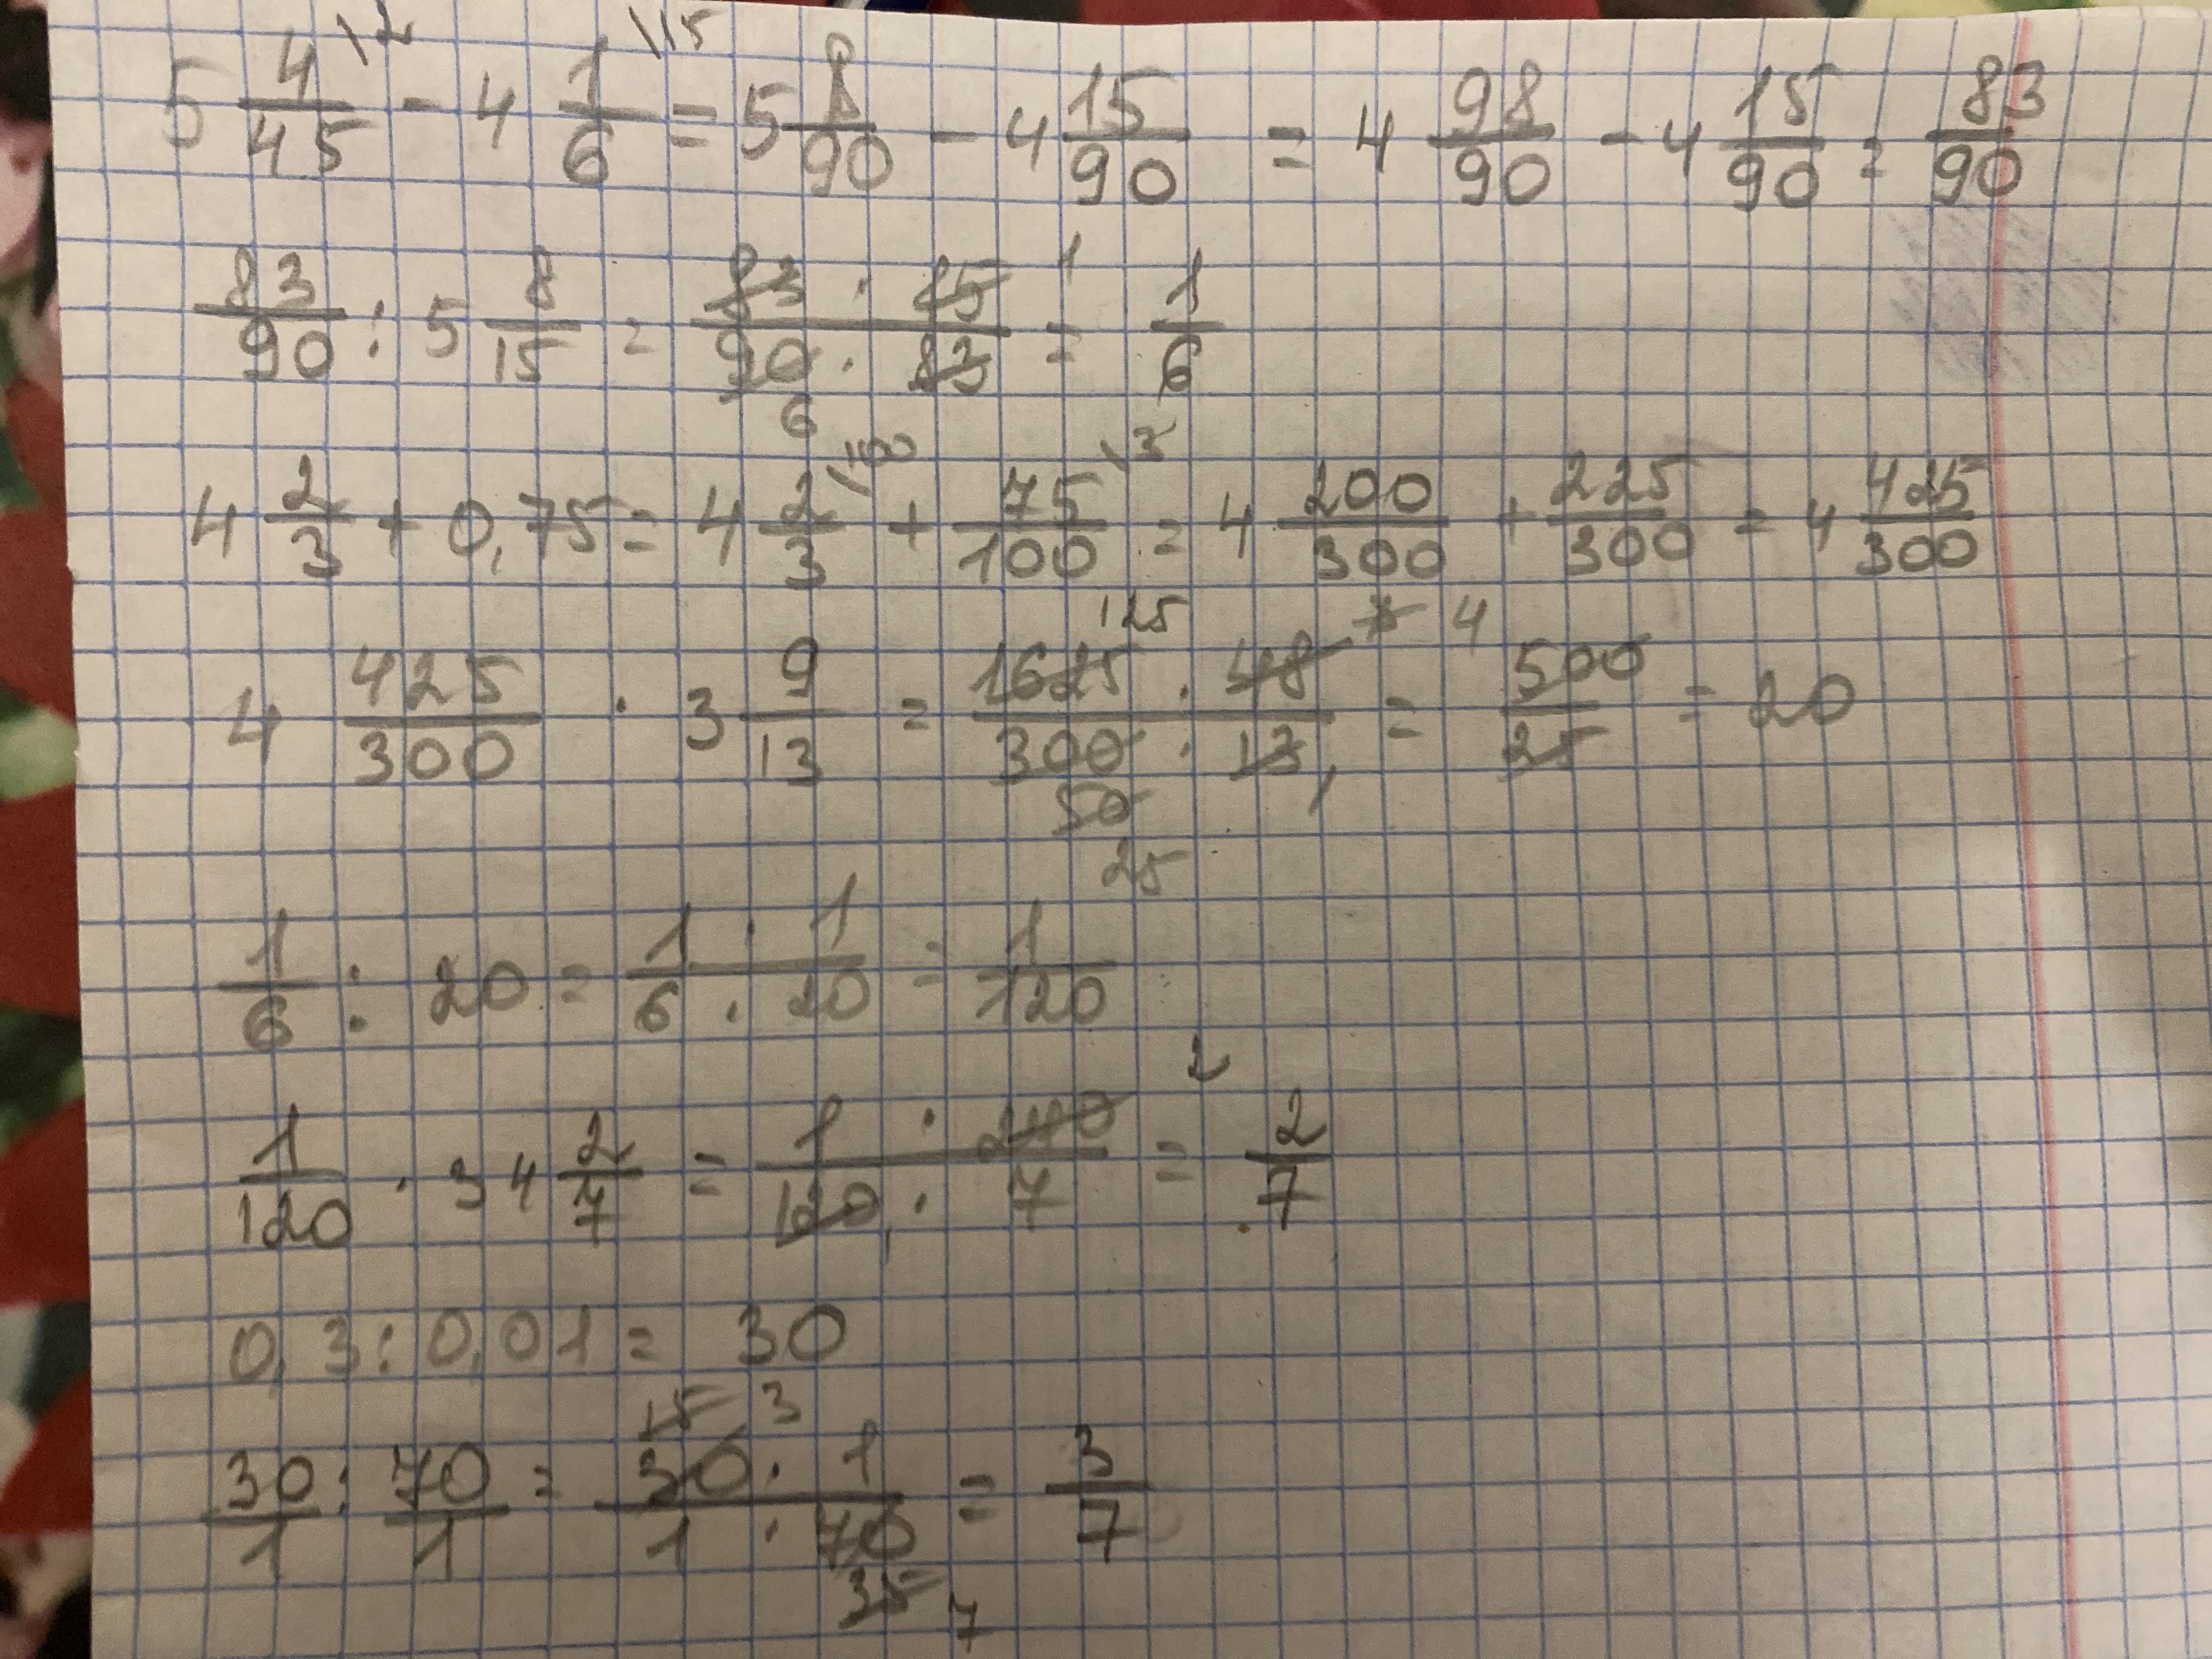 5 4/45 \2 - 4 1/6 \15 = 5 8/90 - 4 15/90 = 4 98/90 - 4 15/90 = 83/90
83/90 : 5 8/15 = 83 · 15 1 / 90 6 · 83 = 1/6
4 2/3 + 0,75 = 4 2/3 \100 + 75/100 \3 = 4 200/300 + 225/300 = 4 425/300
4 425/300 · 3 9/13 = 1625 125 · 48 8 4 / 300 50 25 · 13 1 = 500/25 = 20
1/6 : 20 = 1 · 1 / 6 · 20 = 1/120
1/120 · 34 2/7 = 1 · 240 2 / 120 1 · 7 = 2/7
0,3 : 0,01 = 30
30/1 : 70/1 = 30 15 3 · 1 / 1 · 70 35 7 = 3/7